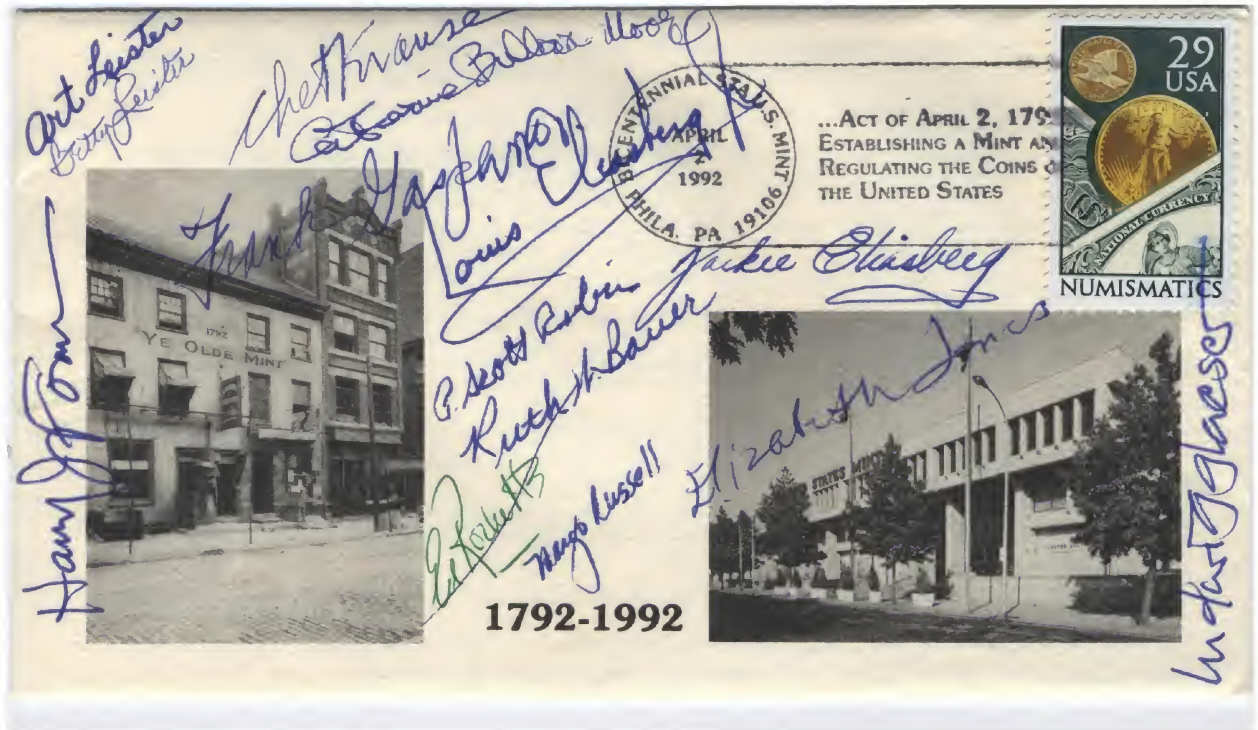 Art Leister
Betty Leister
Chet Krause
Catherine Bullowa-Moore
Frank Gasparro
Louis Eliasberg
BICENTENNIAL STA. U.S. MINT
APRIL
2
1992
PHILA. PA 19106
...ACT OF APRIL 2, 179
ESTABLISHING A MINT AN
REGULATING THE COINS O
THE UNITED STATES
29
USA
NATIONAL CURRENCY
NUMISMATICS
Jackie Eliasberg
P. Scott Rubin
Ruth W. Bauer
Elizabeth Jones
Ed Rochette
Margo Russell
Harry J Forman
1792
YE OLDE MINT
STATES MINT
1792-1992